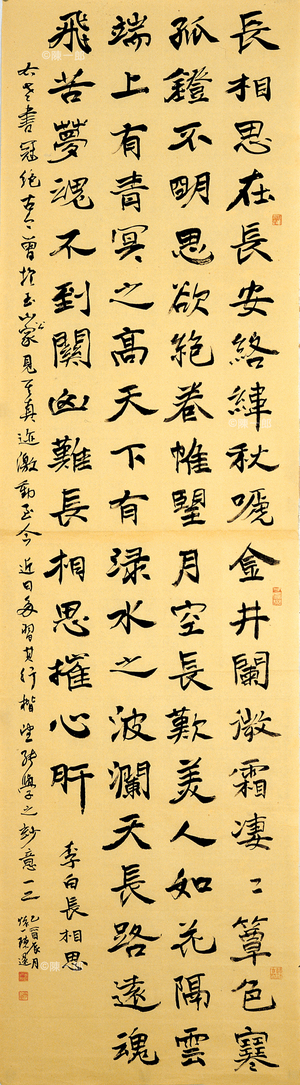 長相思在長安絡緯秋嗁金井闌微霜淒〻簟色寒
孤鐙不明思欲絕卷帷朢月空長歎美人如花隔雲
端上有青冥之高天下有淥水之波瀾天長路遠魂
飛苦夢魂不到關山難長相思摧心肝
李白長相思
老書冠絕古今曾於玉山家見其真迹激動至今近日每習其行楷望能學之妙意一二
乙酉辰月
©陳一郎
©陳一郎
©陳一郎
©陳一郎